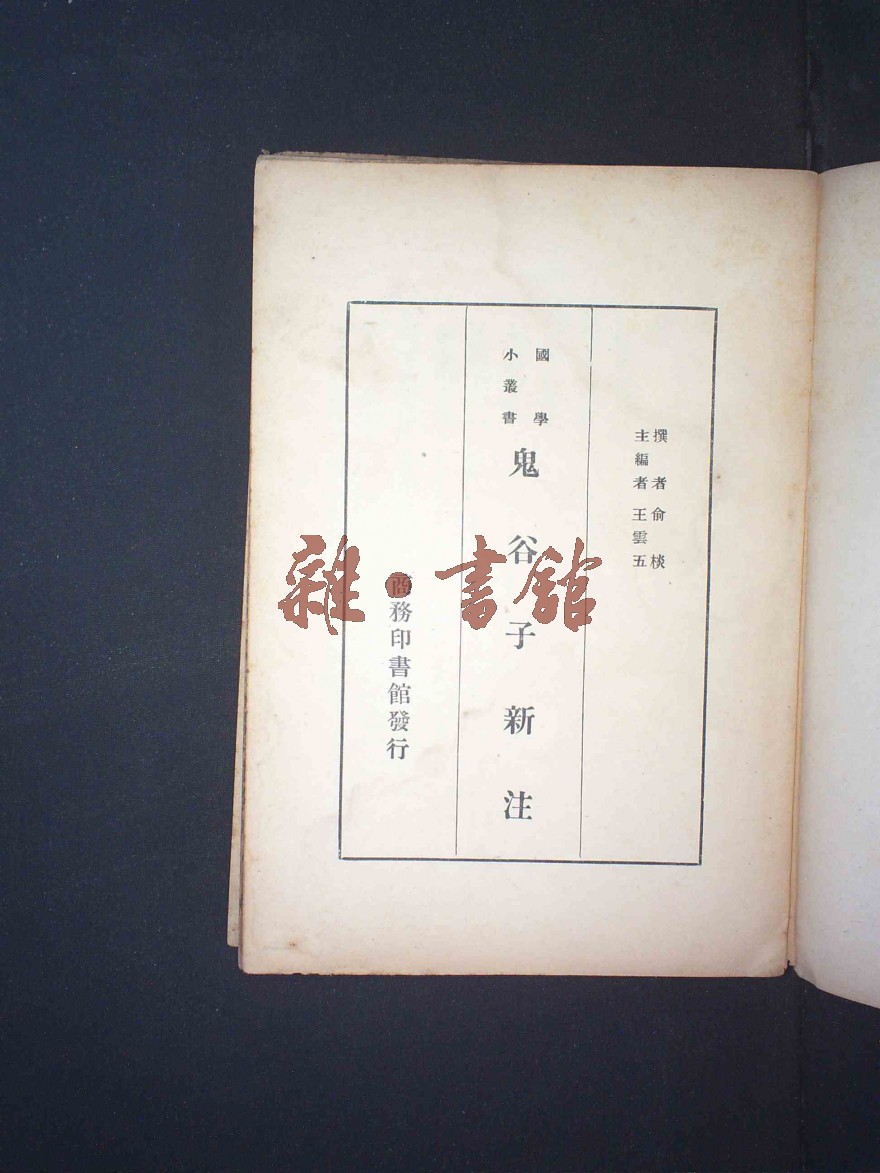 撰者俞棪
主編者王雲五
國學
小叢書
鬼谷子新注
商務印書館發行
雜·書館